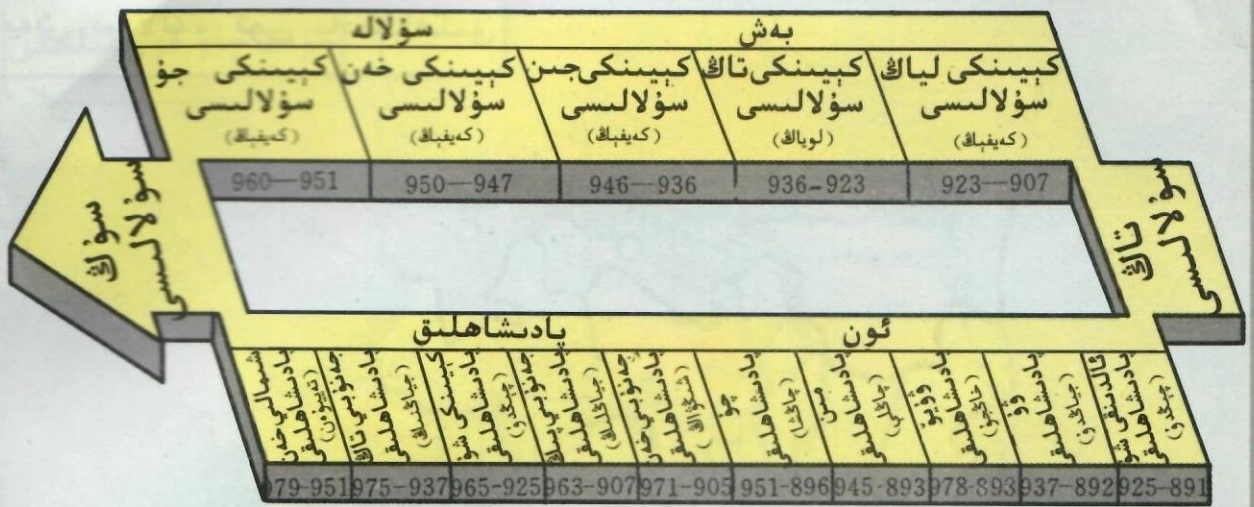 بەش سۇلالە
كېيىنكى لياڭ
سۇلالىسى
(كەيفېڭ)
923—907
كېيىنكى تاڭ
سۇلالىسى
(لوياڭ)
936-923
كېيىنكى جىن
سۇلالىسى
(كەيفېڭ)
946—936
كېيىنكى خەن
سۇلالىسى
(كەيفېڭ)
950—947
كېيىنكى جۇ
سۇلالىسى
(كەيفېڭ)
960—951
تاڭ
سۇلالىسى
سۇڭ
سۇلالىسى
ئون پادىشاھلىق
ئالدىنقى شۇ
پادىشاھلىقى
(چېڭدۇ)
925-891
ۋۇ
پادىشاھلىقى
(جياڭدۇ)
937-892
ۋۇيۇ
پادىشاھلىقى
(خاڭجۇ)
978-893
مىن
پادىشاھلىقى
(چاڭلې)
945-893
چۇ
پادىشاھلىقى
(چاڭشا)
951-896
جەنۇبىي خەن
پادىشاھلىقى
971-905
جەنۇبىي پىڭ
پادىشاھلىقى
(جياڭلىڭ)
963-907
كېيىنكى شۇ
پادىشاھلىقى
(چېڭدۇ)
965-925
جەنۇبىي تاڭ
پادىشاھلىقى
(جياڭنىڭ)
975-937
شىمالىي خەن
پادىشاھلىقى
(تەييۈەن)
979-951